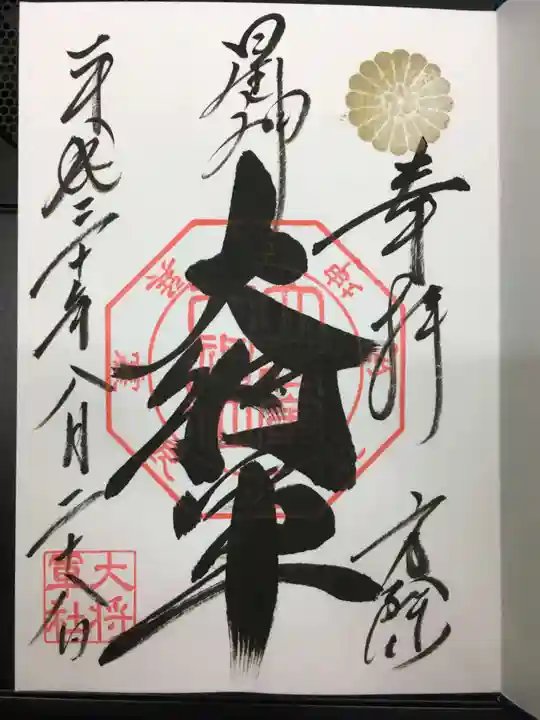 奉拝
方除
星神
大将軍
平成三十年八月二十六日
大将
軍社